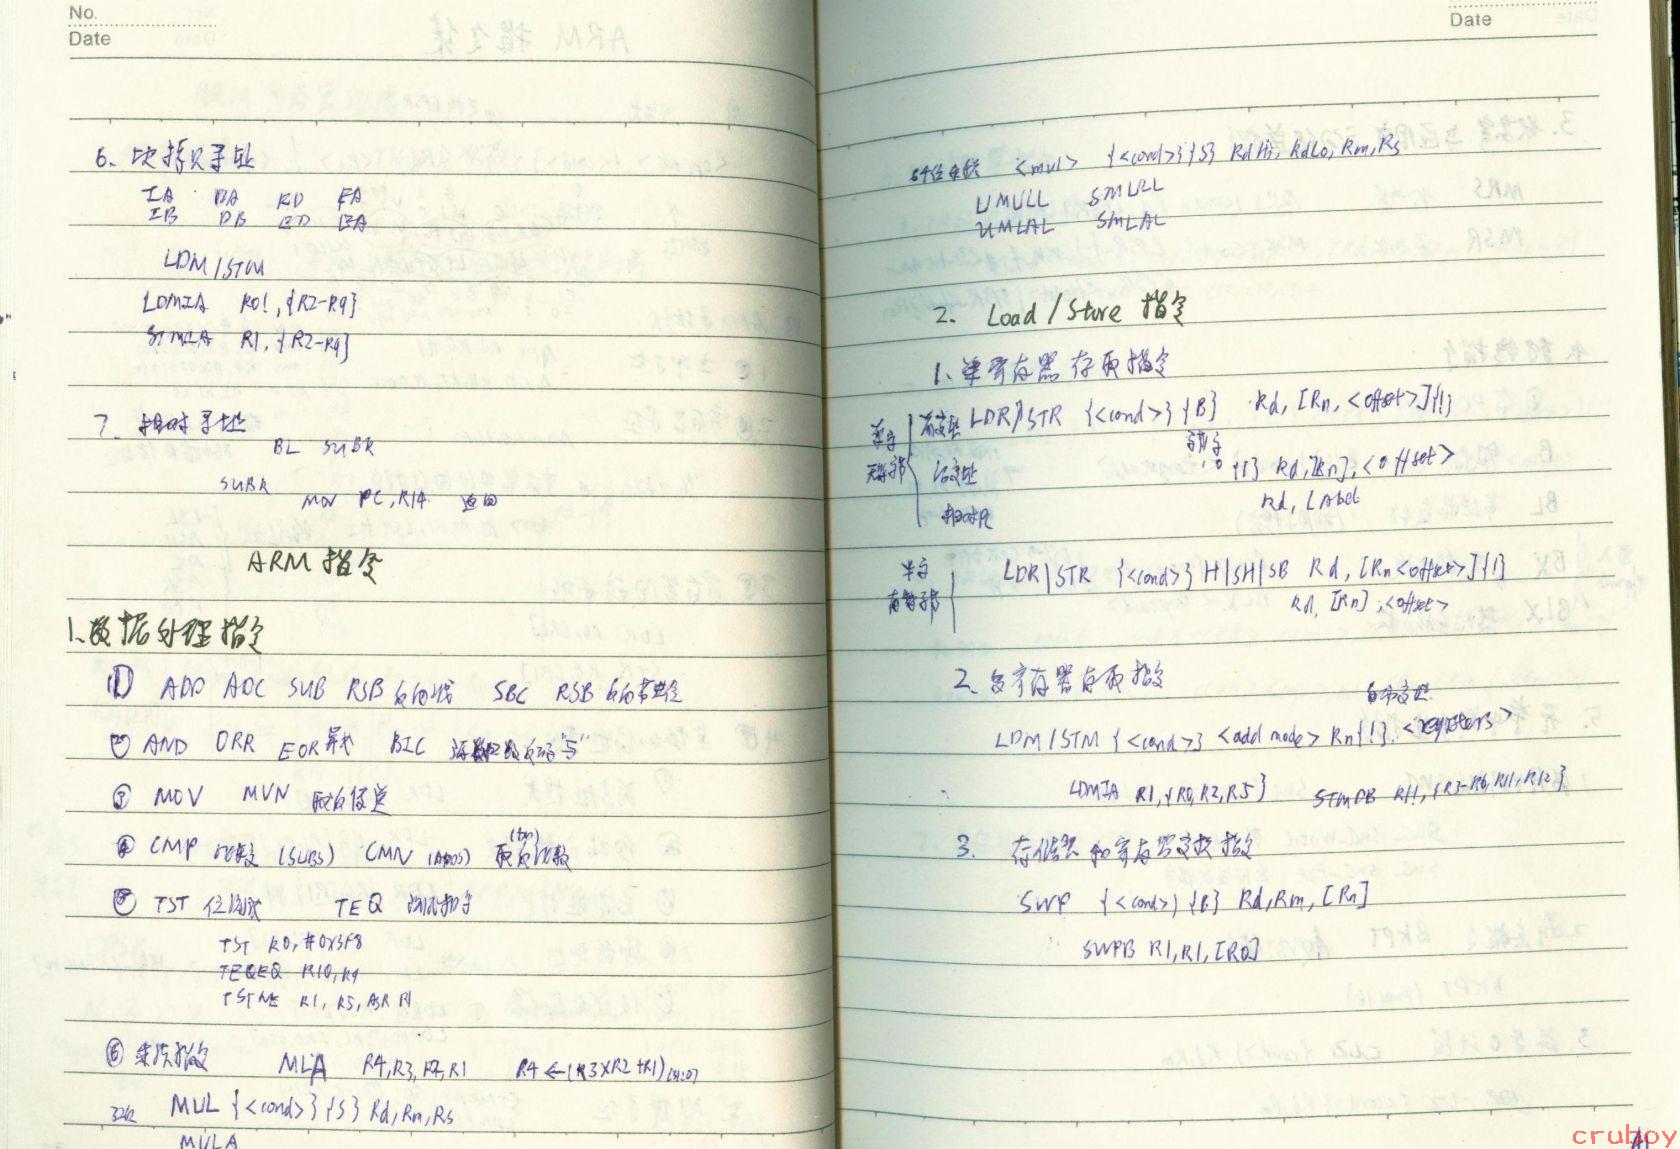 No.
Date
6. 块拷贝寻址
IA DA FD FA
IB DB ED EA
LDM/STM
LDMIA R0!, {R2-R9}
STMIA R1, {R2-R9}
7. 相对寻址
BL SUBR
SUBR
MOV PC, R14 返回
ARM 指令
1. 数据处理指令
① ADD ADC SUB RSB 反向减 SBC RSB 反向带进位
② AND ORR EOR 异或 BIC "与"
③ MOV MVN 取反传送
④ CMP 比较 (SUBS) CMN (ADDS) 取负比较
⑤ TST 位测试 TEQ 测试相等
TST R0, #0x3F8
TEQEQ R10, R9
TSTNE R1, R5, ASR R1
⑥ 乘法指令 MLA R4, R3, R2, R1 R4 ← (R3×R2+R1)[31:0]
32位 MUL {<cond>} {S} Rd, Rm, Rs
MULA
Date
64位乘法 <mul> {<cond>} {S} RdHi, RdLo, Rm, Rs
UMULL SMULL
UMLAL SMLAL
2. Load / Store 指令
1. 单寄存器存取指令
单字 前变址 LDR/STR {<cond>} {B} Rd, [Rn, <offset>]{!}
无符号字节 后变址 {T} Rd, [Rn], <offset>
相对PC Rd, LAbel
半字 LDR|STR {<cond>} H|SH|SB Rd, [Rn <offset>]{!}
有符号字节 Rd, [Rn], <offset>
2. 多寄存器存取指令
自动变址
LDM/STM {<cond>} <add mode> Rn{!}, <registers>
LDMIA R1, {R0, R2, R5} STMDB R11, {R3-R6, R11, R12}
3. 存储器和寄存器交换指令
SWP {<cond>} {B} Rd, Rm, [Rn]
SWPB R1, R1, [R0]
cruboy